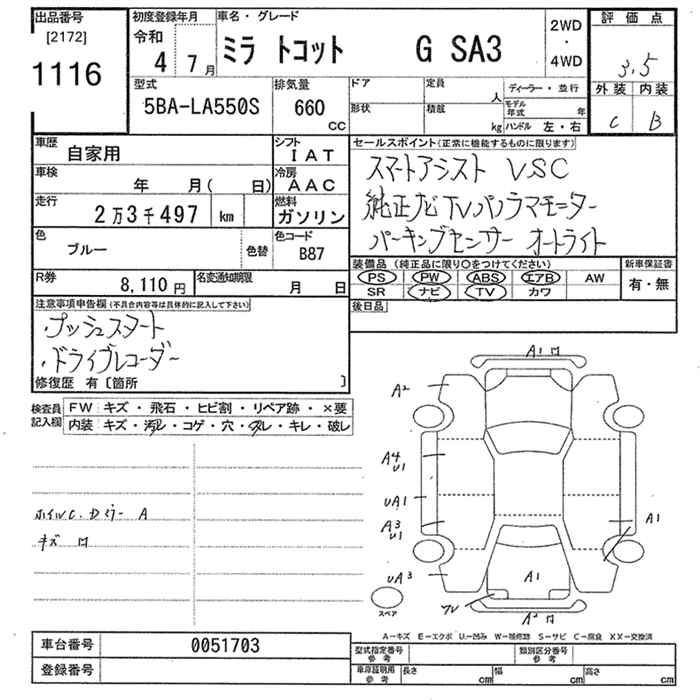 出品番号
[2172]
1116
初度登録年月
令和
4年 7月
車名・グレード
ミラ トコット G SA3
2WD
・
4WD
評価点
3.5
外装 内装
C B
型式
5BA-LA550S
排気量
660
CC
ドア
形状
定員
人
積載
kg
ディーラー・並行
モデル年式 年
ハンドル 左・右
車歴
自家用
シフト
IAT
車検
年 月( 日)
冷房
AAC
走行
2万3千497 km
燃料
ガソリン
色
ブルー
色替
色コード
B87
R券
8,110円
名変通知期限
月 日
セールスポイント(正常に機能するものに限ります)
スマートアシスト VSC
純正ナビ TV パノラマモニター
パーキングセンサー オートライト
装備品(純正品に限り○をつけてください)
新車保証書
PS PW ABS エアB AW
SR ナビ TV カワ
有・無
後日品
注意事項申告欄(不具合内容等は具体的に記入して下さい)
・プッシュスタート
・ドライブレコーダー
修復歴 有〔箇所 〕
検査員記入欄
FW キズ・飛石・ヒビ割・リペア跡・×要
内装 キズ・汚レ・コゲ・穴・スレ・キレ・破レ
ホイルC.Dミラー A
キズ
A1
A2
A4
U1
UA1
A3
U1
A1
UA3
A1
A2
スペア
A-キズ E-エクボ U-凹み W-補修跡 S-サビ C-腐食 XX-交換済
車台番号
0051703
登録番号
型式指定番号
参考
類別区分番号
参考
車庫証明用
参考
長さ cm
幅 cm
高さ cm